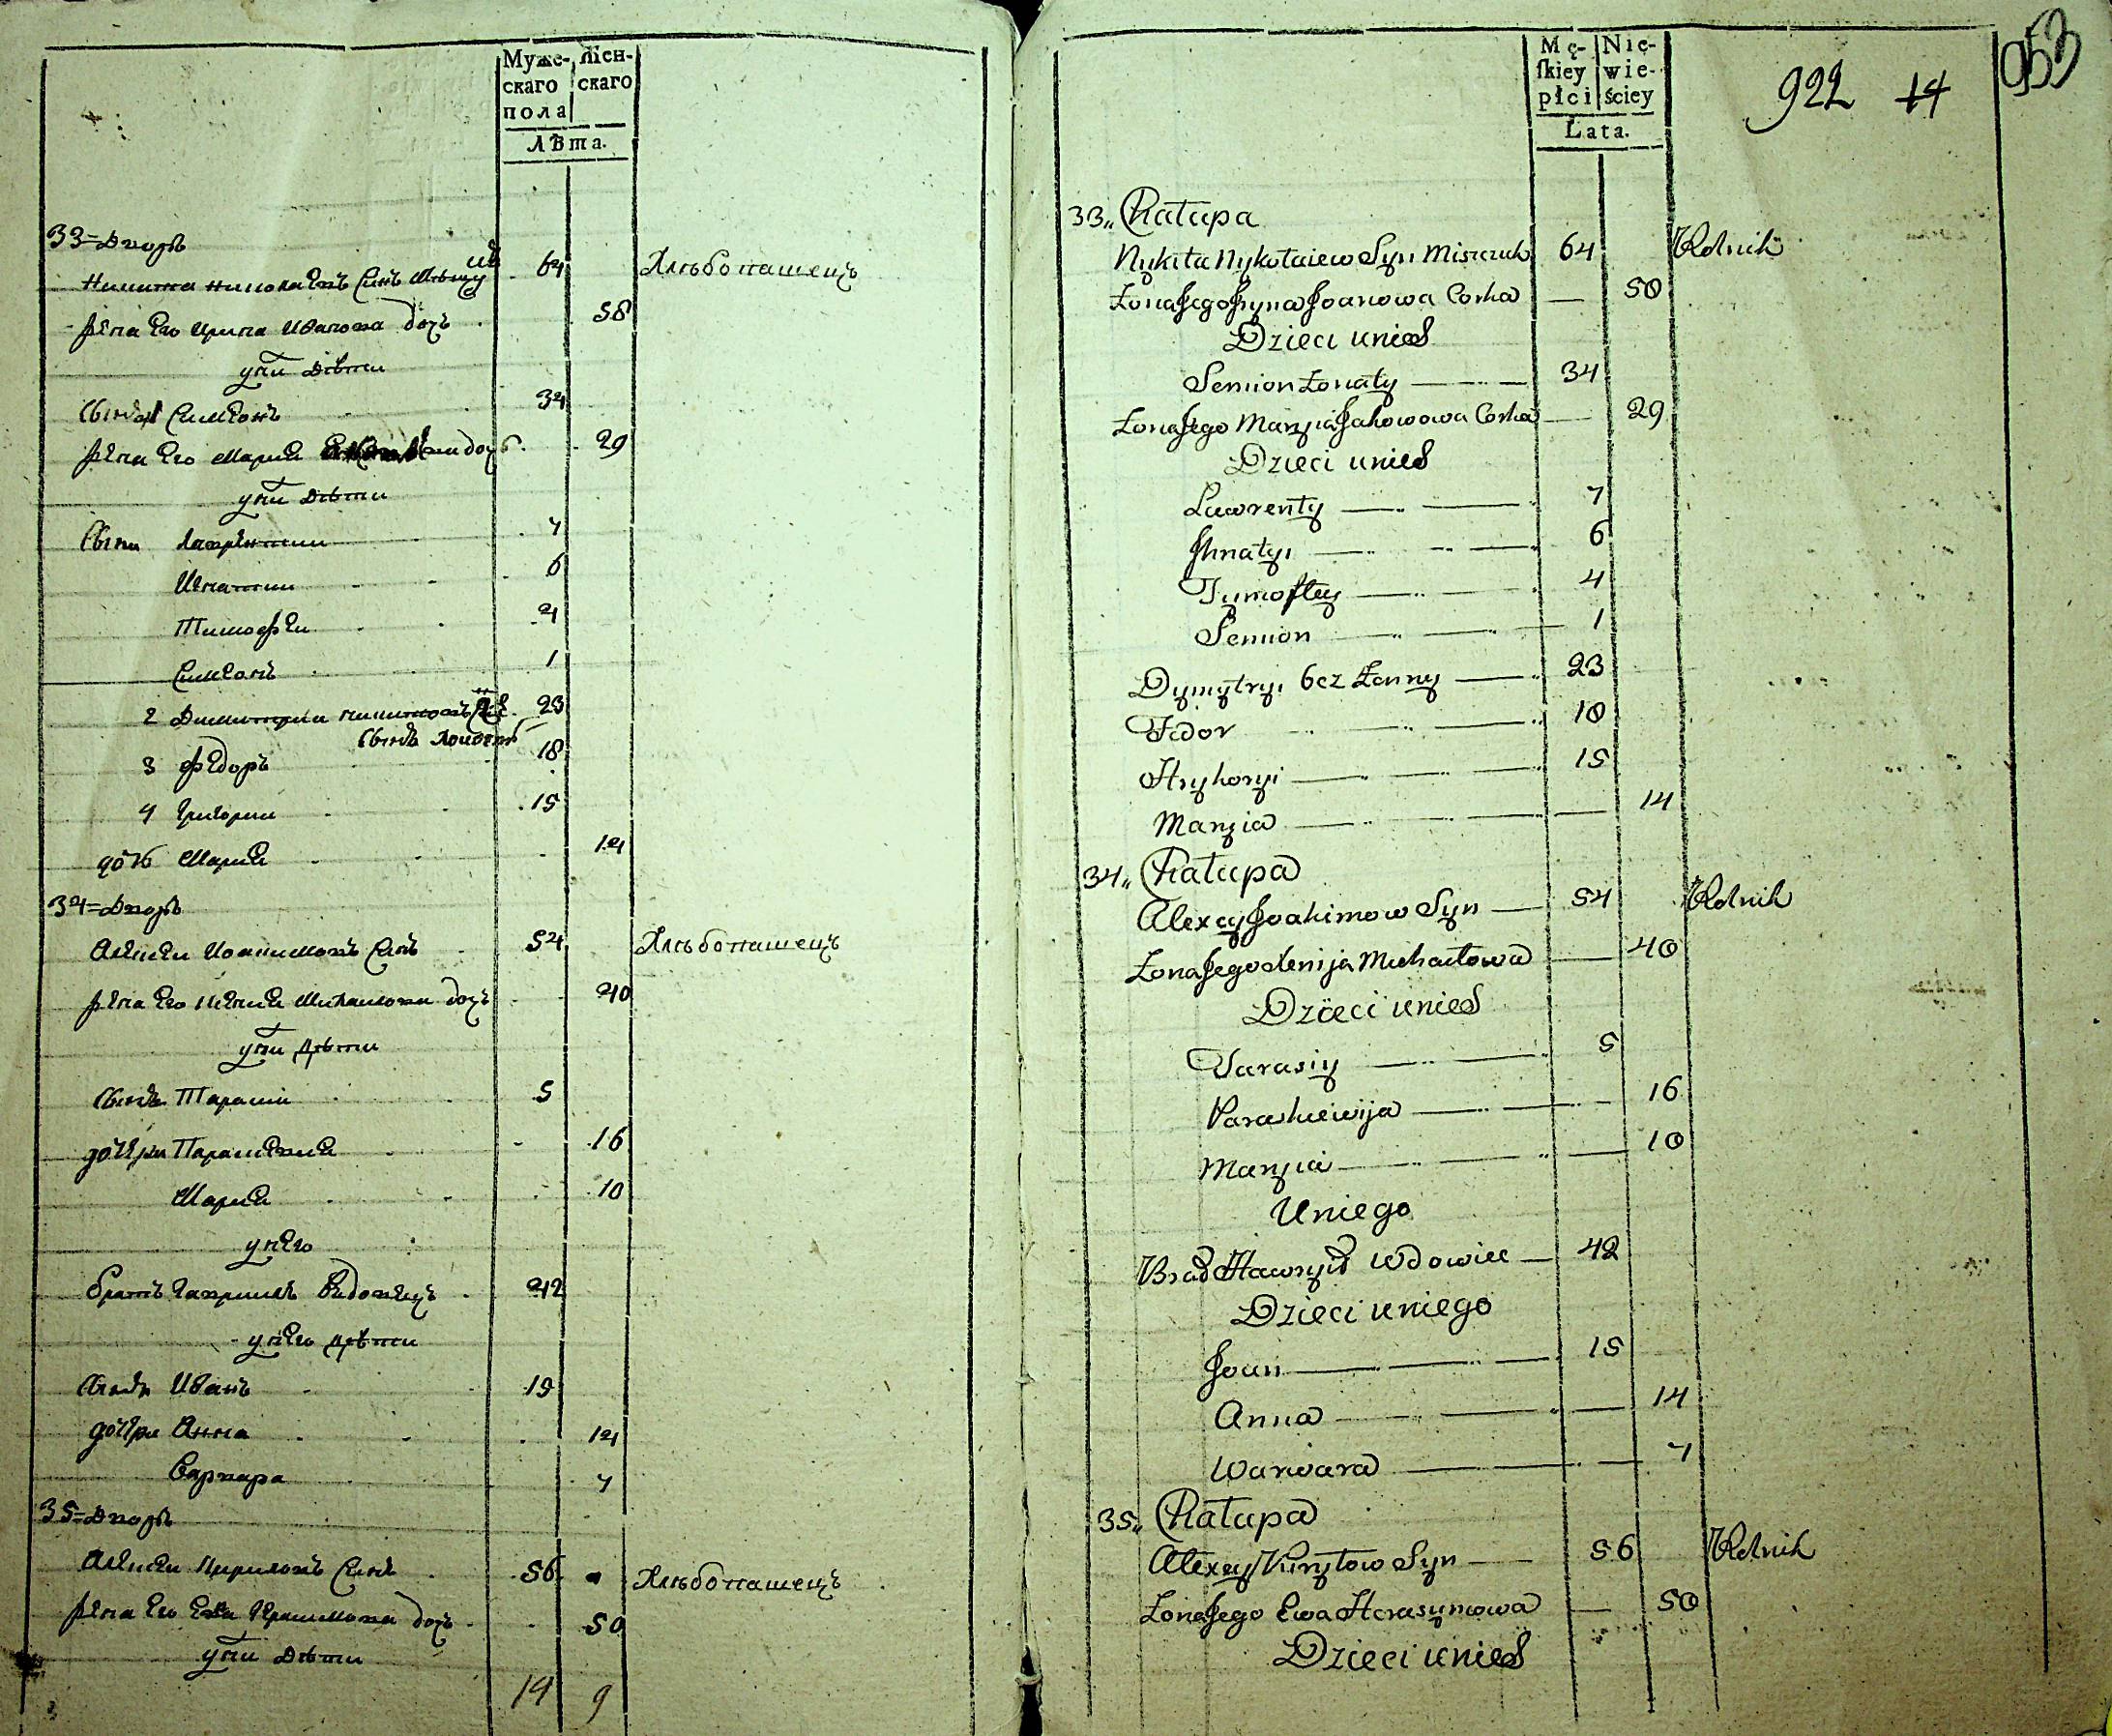 Муже-
скаго
пола
Жен-
скаго
Лѣта.
33=Дворъ
Никита Николаевъ Синъ Мѣщу 64 Хлѣбопашецъ
жена Его Ирина Иванова дочъ 58
у них Дѣти
Сынъ Симеонъ 34
жена Его Мариа дочъ 29
у них Дѣти
Сыны Лаврентии 7
Игнатии 6
Тимофеи 4
Симеонъ 1
2 Димитрии Никитовъ 23
Сынъ Холостъ
3 Федоръ 18
4 Григории 15
дочь Мариа 14
34=Дворъ
Алексеи Иоакимовъ Синъ 54 Хлѣбопашецъ
жена Его Ксениа Михаилова дочъ 40
у них Дѣти
Сынъ Тарасии 5
дочери Параскевиа 16
Мариа 10
у него
братъ Гавриилъ вдовецъ 42
у него дѣти
Сынъ Иванъ 15
дочери Анна 14
Варвара 7
35=Дворъ
Алексеи Кириловъ Синъ 56 Хлѣбопашецъ
жена Его Ева Герасимова дочъ 50
у них Дѣти
19 9
Mę-
ſkiey
płci
Nie-
wie-
ściey
Lata.
922 14
953
33„ Chałupa
Nykita Nykołaiew Syn Miszczuk 64 Rolnik
Żona Jego Jryna Joanowa Corka — 58
Dzieci u nieÿ
Semion Żonaty — 34
Żona Jego Maryia Jakowowa Corka — 29
Dzieci u nieÿ
Ławrenty — 7
Jhnatyi — 6
Tymoftey — 4
Semion — 1
Dymytryi bez Żenny — 23
Fedor — 18
Hryhoryi — 15
Maryia — 14
34„ Chałupa
Alexey Joakimow Syn — 54 Rolnik
Żona Jego Xenija Michaiłowa — 40
Dzieci u nieÿ
Tarasiy — 5
Paraskewija — 16
Maryia — 10
U niego
Brad Hawryił Wdowiec — 42
Dzieci u niego
Joan — 15
Anna — 14
Warwara — 7
35„ Chałupa
Alexey Kiryłow Syn — 56 Rolnik
Żona Jego Ewa Herasymowa — 50
Dzieci u nieÿ